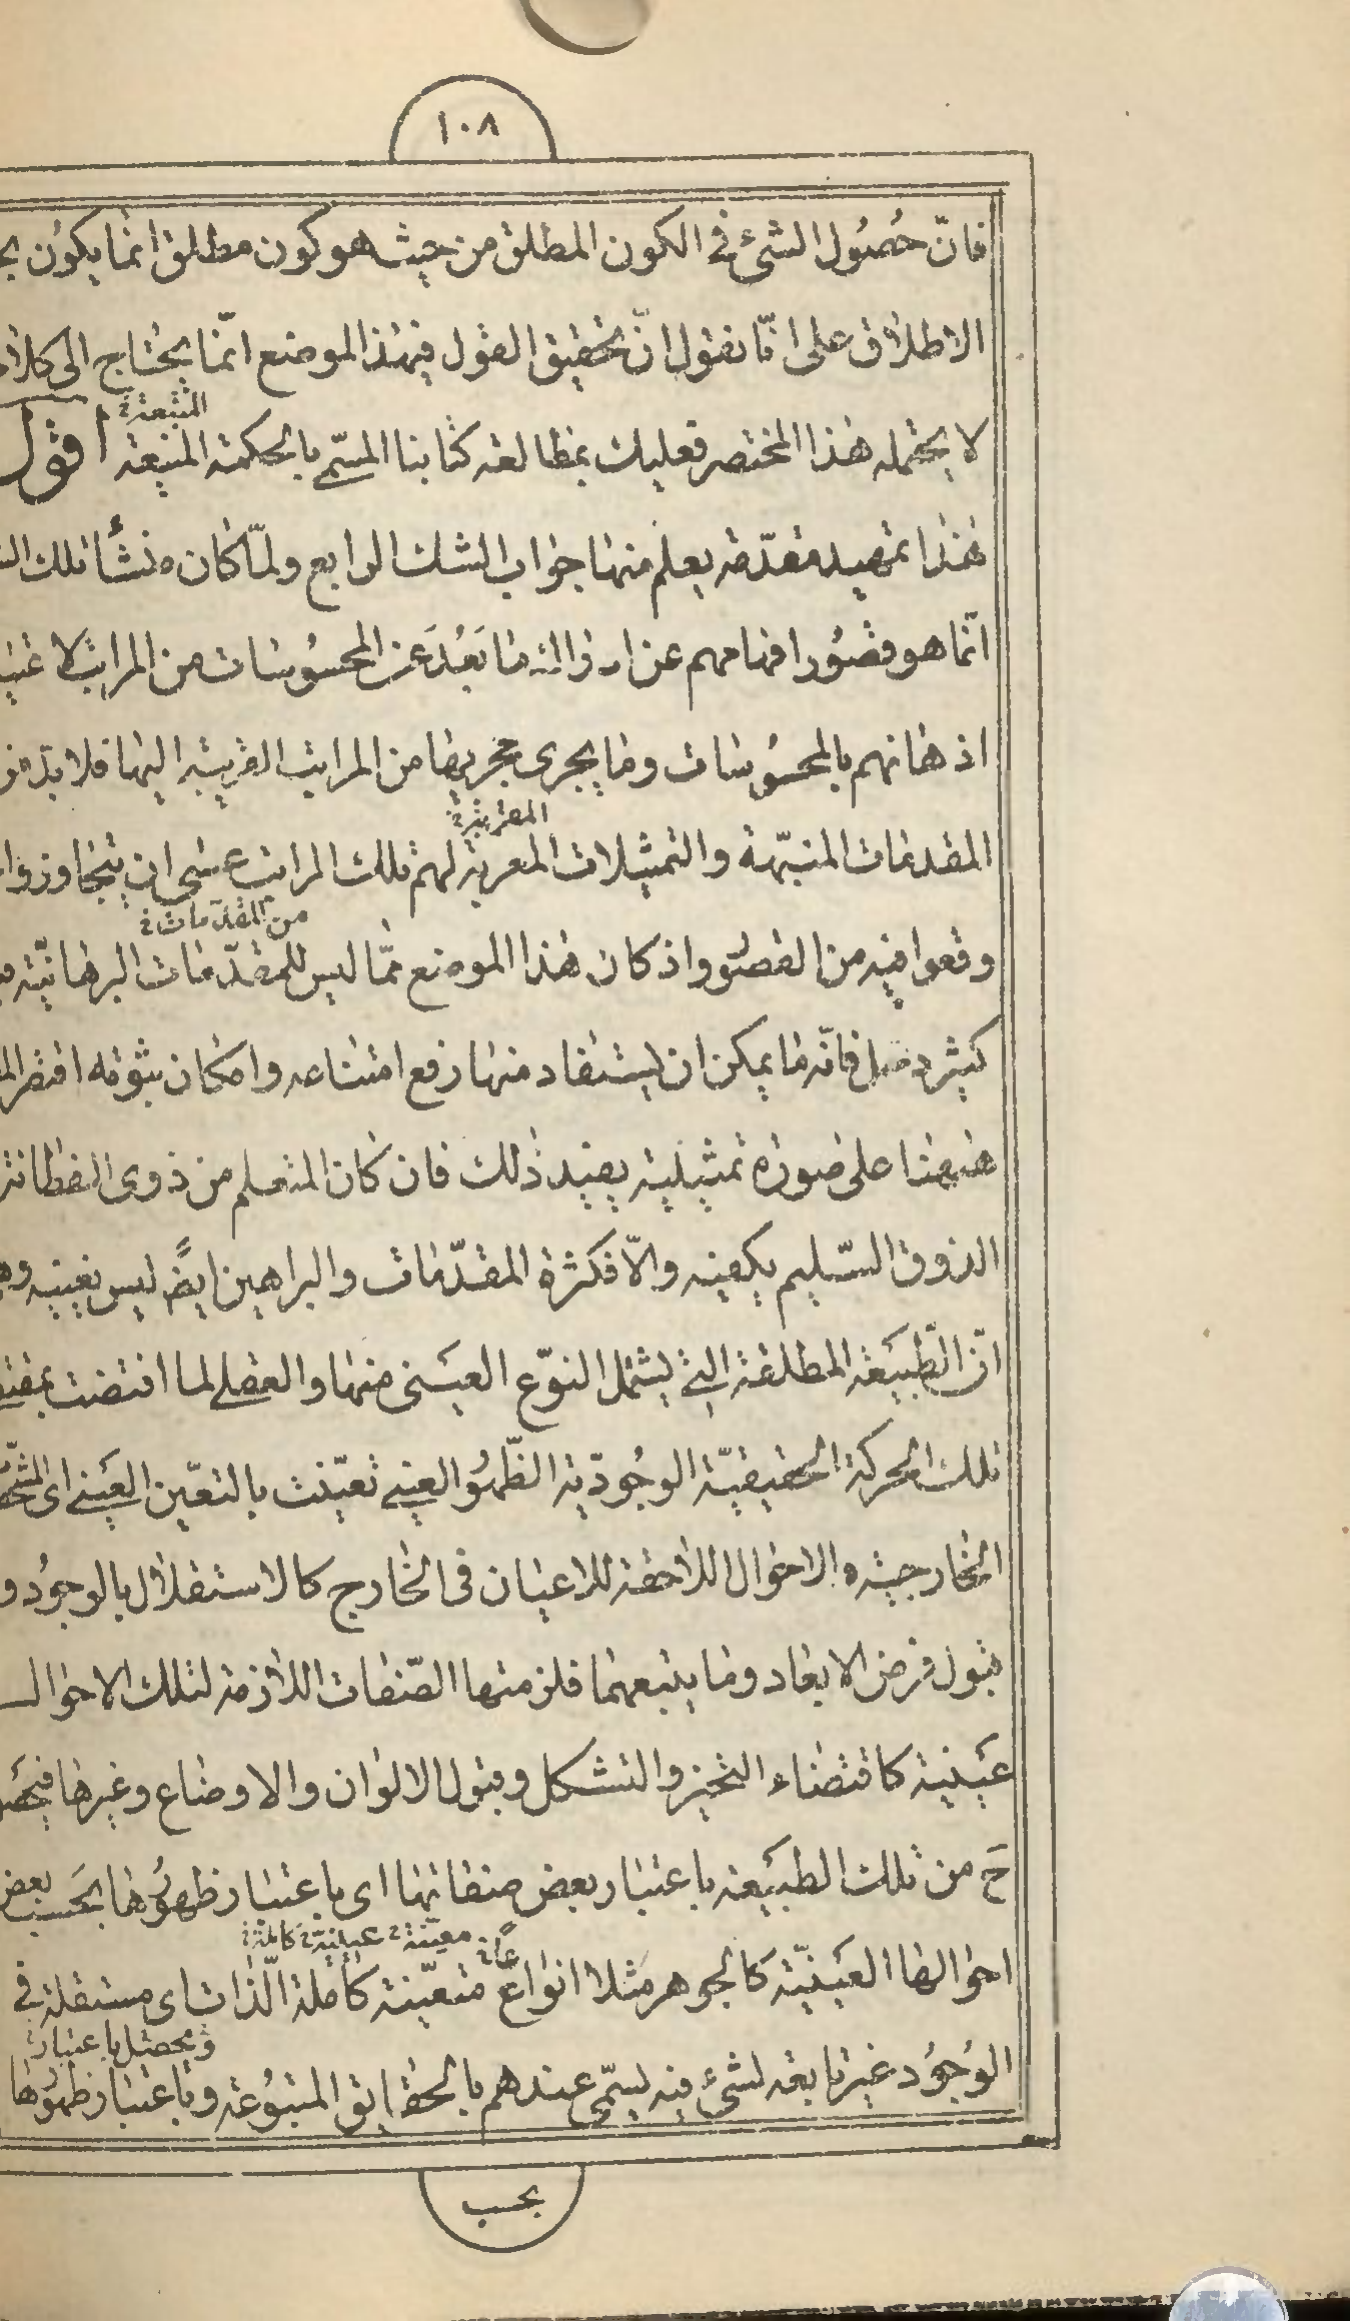 ١٠٨
فانّ حُصُول الشئ في الكون المطلق من حيث هو كون مطلق انّما يكوُن
الاطلاق على انّا نقول انّ تحقيق القول فيهذا الموضع انّما يحتاج الى
المتبعة
لا يحتمله هذا المختصر فعليك بمطالعة كتابنا المسمّى بالحكمة المنيعة اقول
هذا تمهيد مقدّمة يعلم منها جواب الشك الرابع ولمّا كان منشأ تلك
انّما هو قصُور افهامهم عن ادراك ما بَعُدَ عن المحسوُسات من المراتب
اذهانهم بالمحسوُسات وما يجرى مجريها من المراتب القريبة اليها فلا بدّ من
المقربة
المقدمات المنبّهة والتمثيلات المعربة لهم تلك المراتب عسى ان يتجاوزوا
من المقدّمات
وقعوا فيه من القصُور واذ كان هذا الموضع ممّا ليس للمقدّمات البرهانيّة
كثير دخل فانّه ما يمكن ان يستفاد منها رفع امتناعه وامكان ثبوته
هيهنا على صورة تمثيلية يفيد ذلك فان كان المتعلم من ذوى الفطانة
الذوق السّليم يكفيه والاّ فكثرة المقدّمات والبراهين ايضً ليس يغنيه
انّ الطّبيَعة المطلقة التى يشتمل النوّع العيَنى منها والعقلى لما اقتضت
تلك الحركة الحقيقيّة الوجُوديّة الظّهوُر العينى تعيّنت بالتعيّن العَينى اى
الخارجية والاحوال اللاحقة للاعيان فى الخارج كالاستقلال بالوجوُد و
قبول فرض الابعاد وما يتبعهما فلزمتها الصّفات اللازمة لتلك الاحوال
عَينية كاقتضاء التحيز والتشكل وقبول الالوان والاوضاع وغيرها
حَ من تلك الطبيَعة باعتبار بعض صفاتها اى باعتبار ظهوُرها بحَسب بعض
عاً معيّنة عينية كاملة
احوالها العَينيّة كالجوهر مَثلا انواعٌ متعيّنة كاملة الذّات اى مستقلة فى
ويحصل باعتبار
الوجُوُد غير تابعة لشئ فيه يسمّى عندهم بالحقايق المتبوُعة وباعتبار ظهوُرها
بحسب